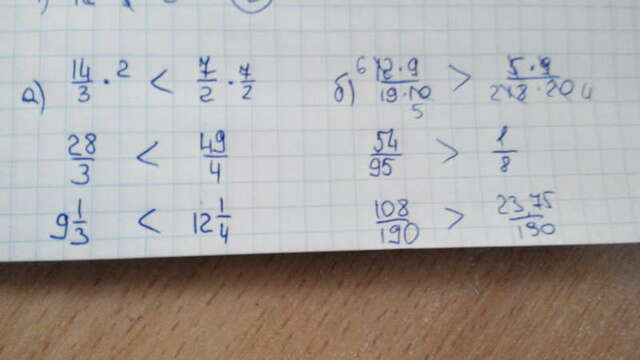 а) 14/3 · 2 < 7/2 · 7/2
28/3 < 49/4
9 1/3 < 12 1/4
б) 6 12 · 9 / 19 · 10 5 > 5 · 9 / 2 18 · 20 4
54/95 > 1/8
108/190 > 23,75/190